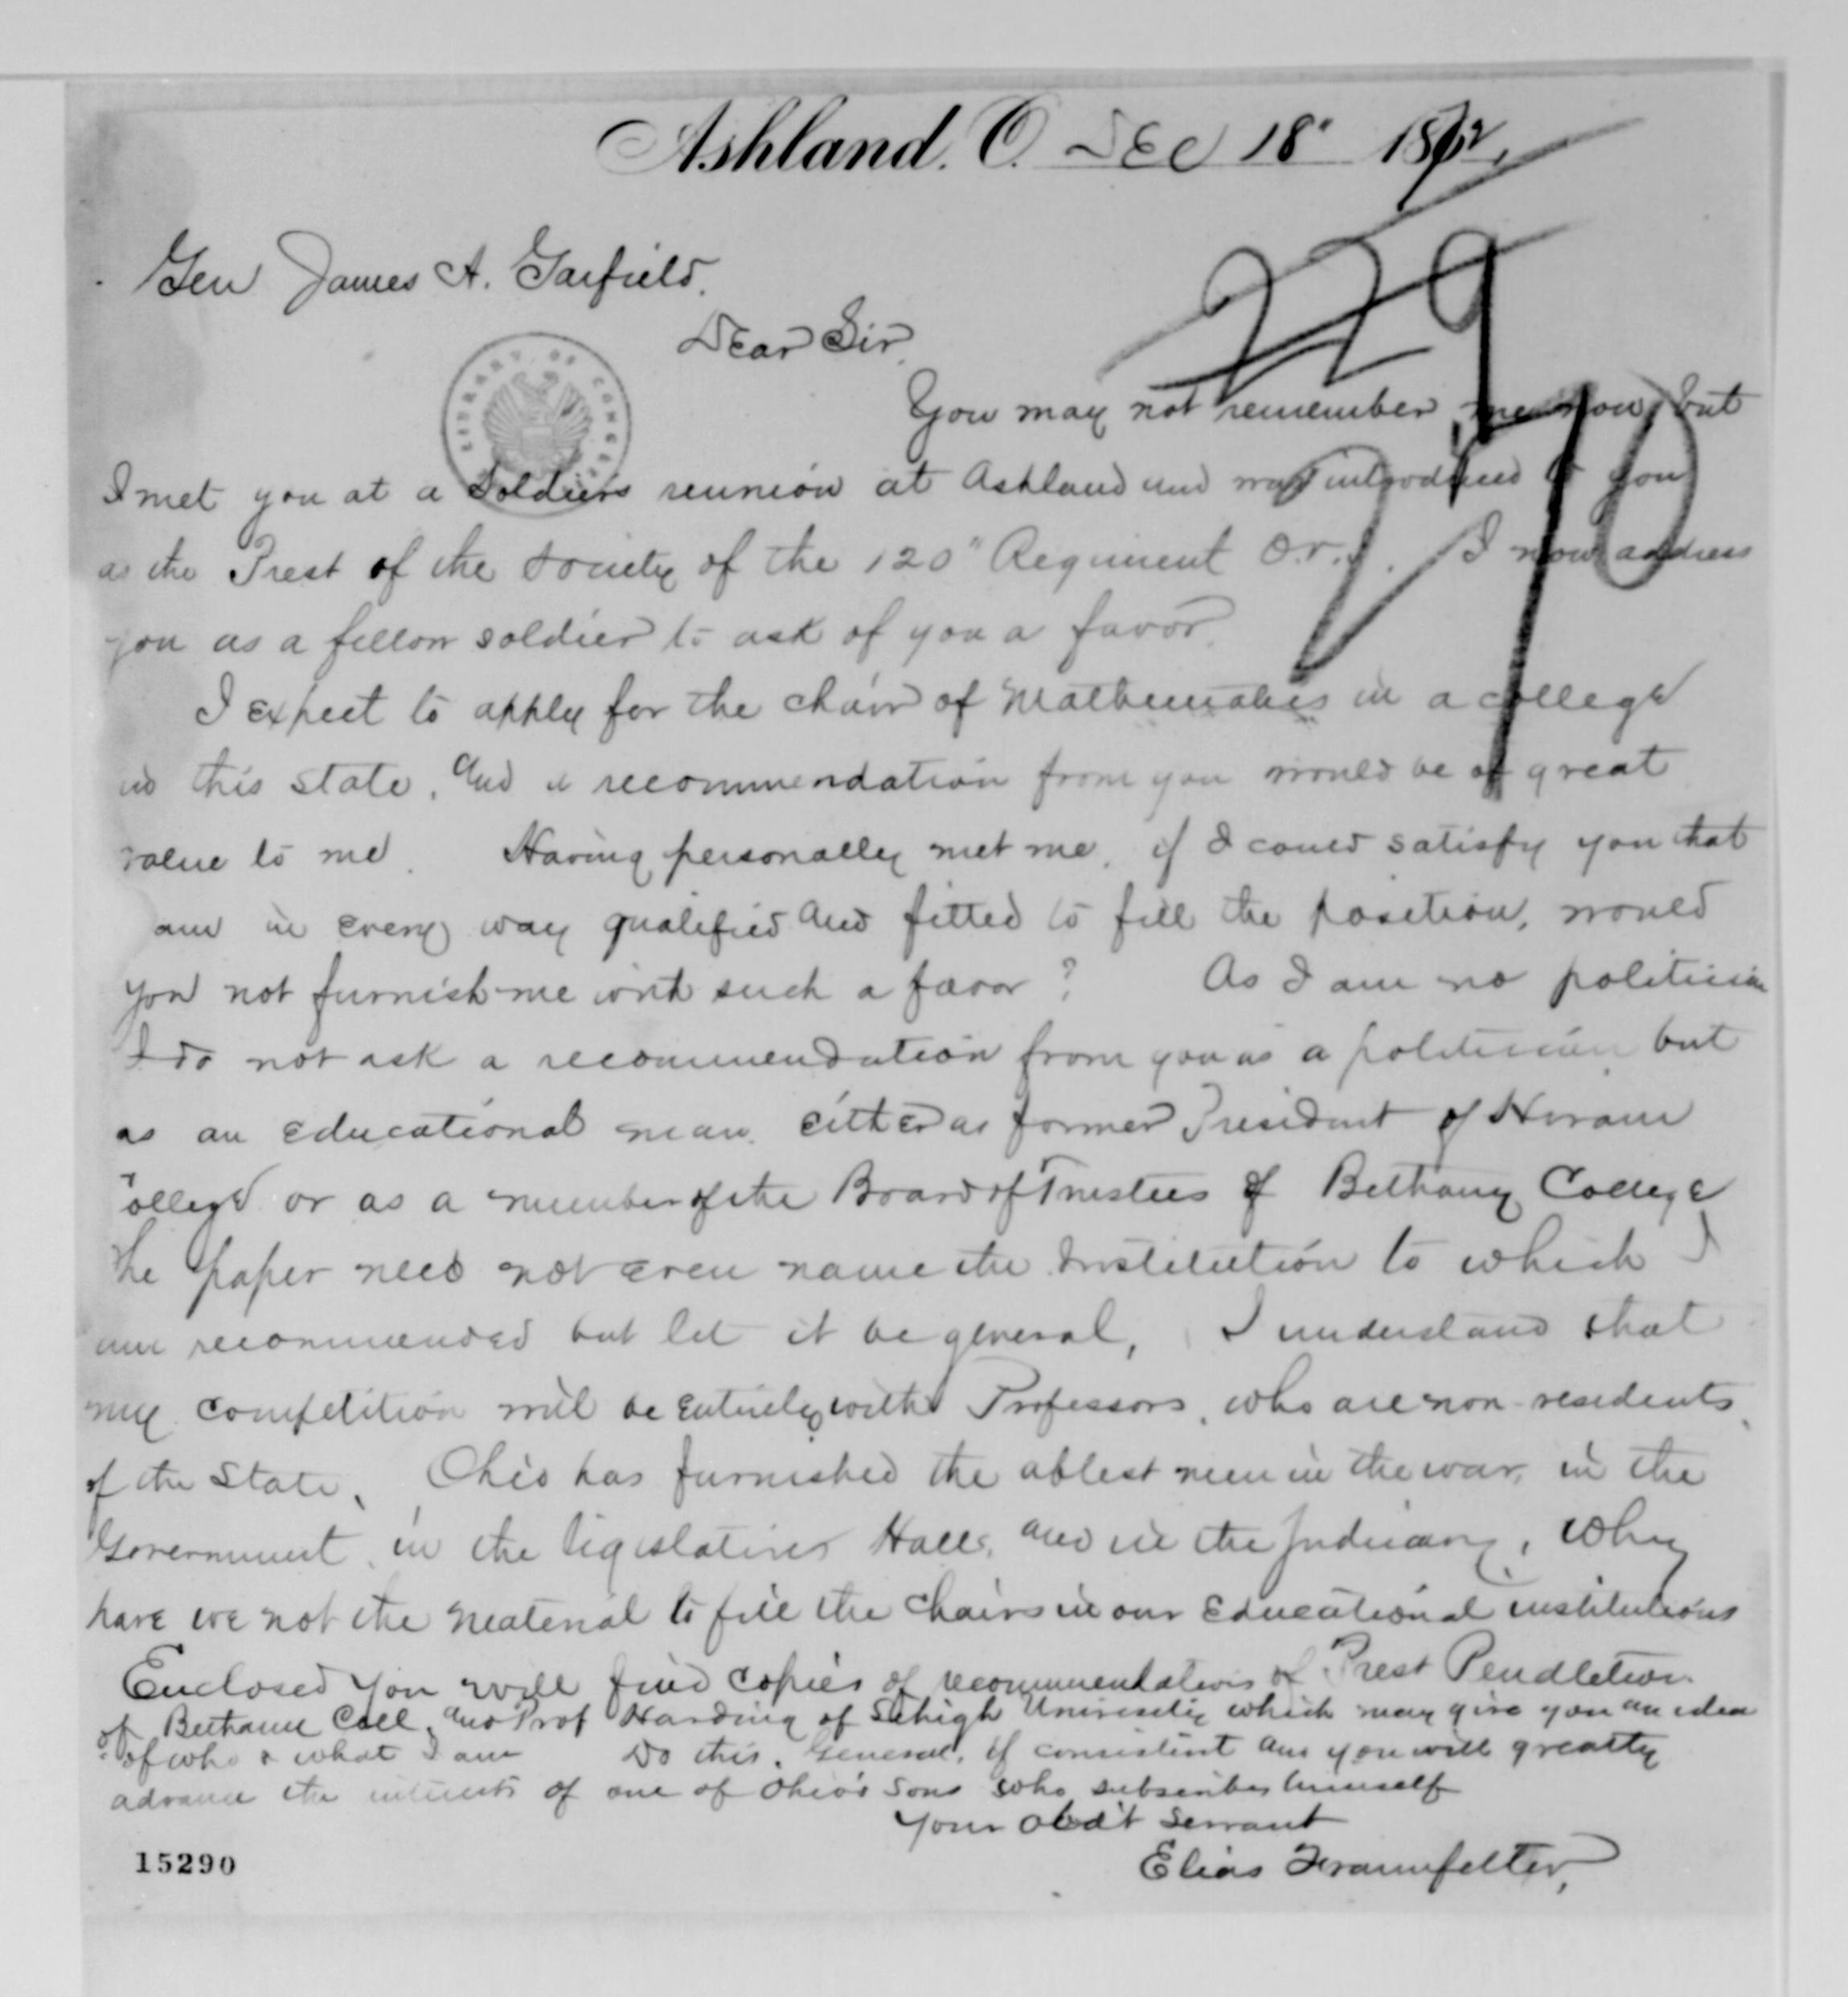 Ashland, O. Dec 18" 1872
229
Gen James A. Garfield.
Dear Sir,
LIBRARY OF CONGRESS
You may not remember me now, but
I met you at a Soldiers reunion at Ashland and was introduced to you
as the Prest of the Society of the 120" Regiment O.V.I. I now address
you as a fellow soldier to ask of you a favor.
I expect to apply for the chair of Mathematics in a college
in this state, and a recommendation from you would be of great
value to me. Having personally met me, if I could satisfy you that
am in every way qualified and fitted to fill the position, would
you not furnish me with such a favor? As I am no politician
I do not ask a recommendation from you as a politician but
as an educational man, either as former President of Hiram
ollege or as a member of the Board of Trustees of Bethany College
The paper need not even name the Institution to which I
am recommended but let it be general, I understand that
my competition will be entirely with Professors, who are non-residents
of the State. Ohio has furnished the ablest men in the war, in the
Government, in the legislative Halls, and in the Judiciary, Why
have we not the material to fill the Chairs in our Educational institutions
Enclosed you will find copies of recommendations of Prest Pendleton
of Bethany Coll. and Prof Harding of Lehigh University which may give you an idea
of who & what I am Do this, General, if consistent and you will greatly
advance the interests of one of Ohio's sons who subscribes himself
Your obed't servant
Elias Fraunfelter,
15290